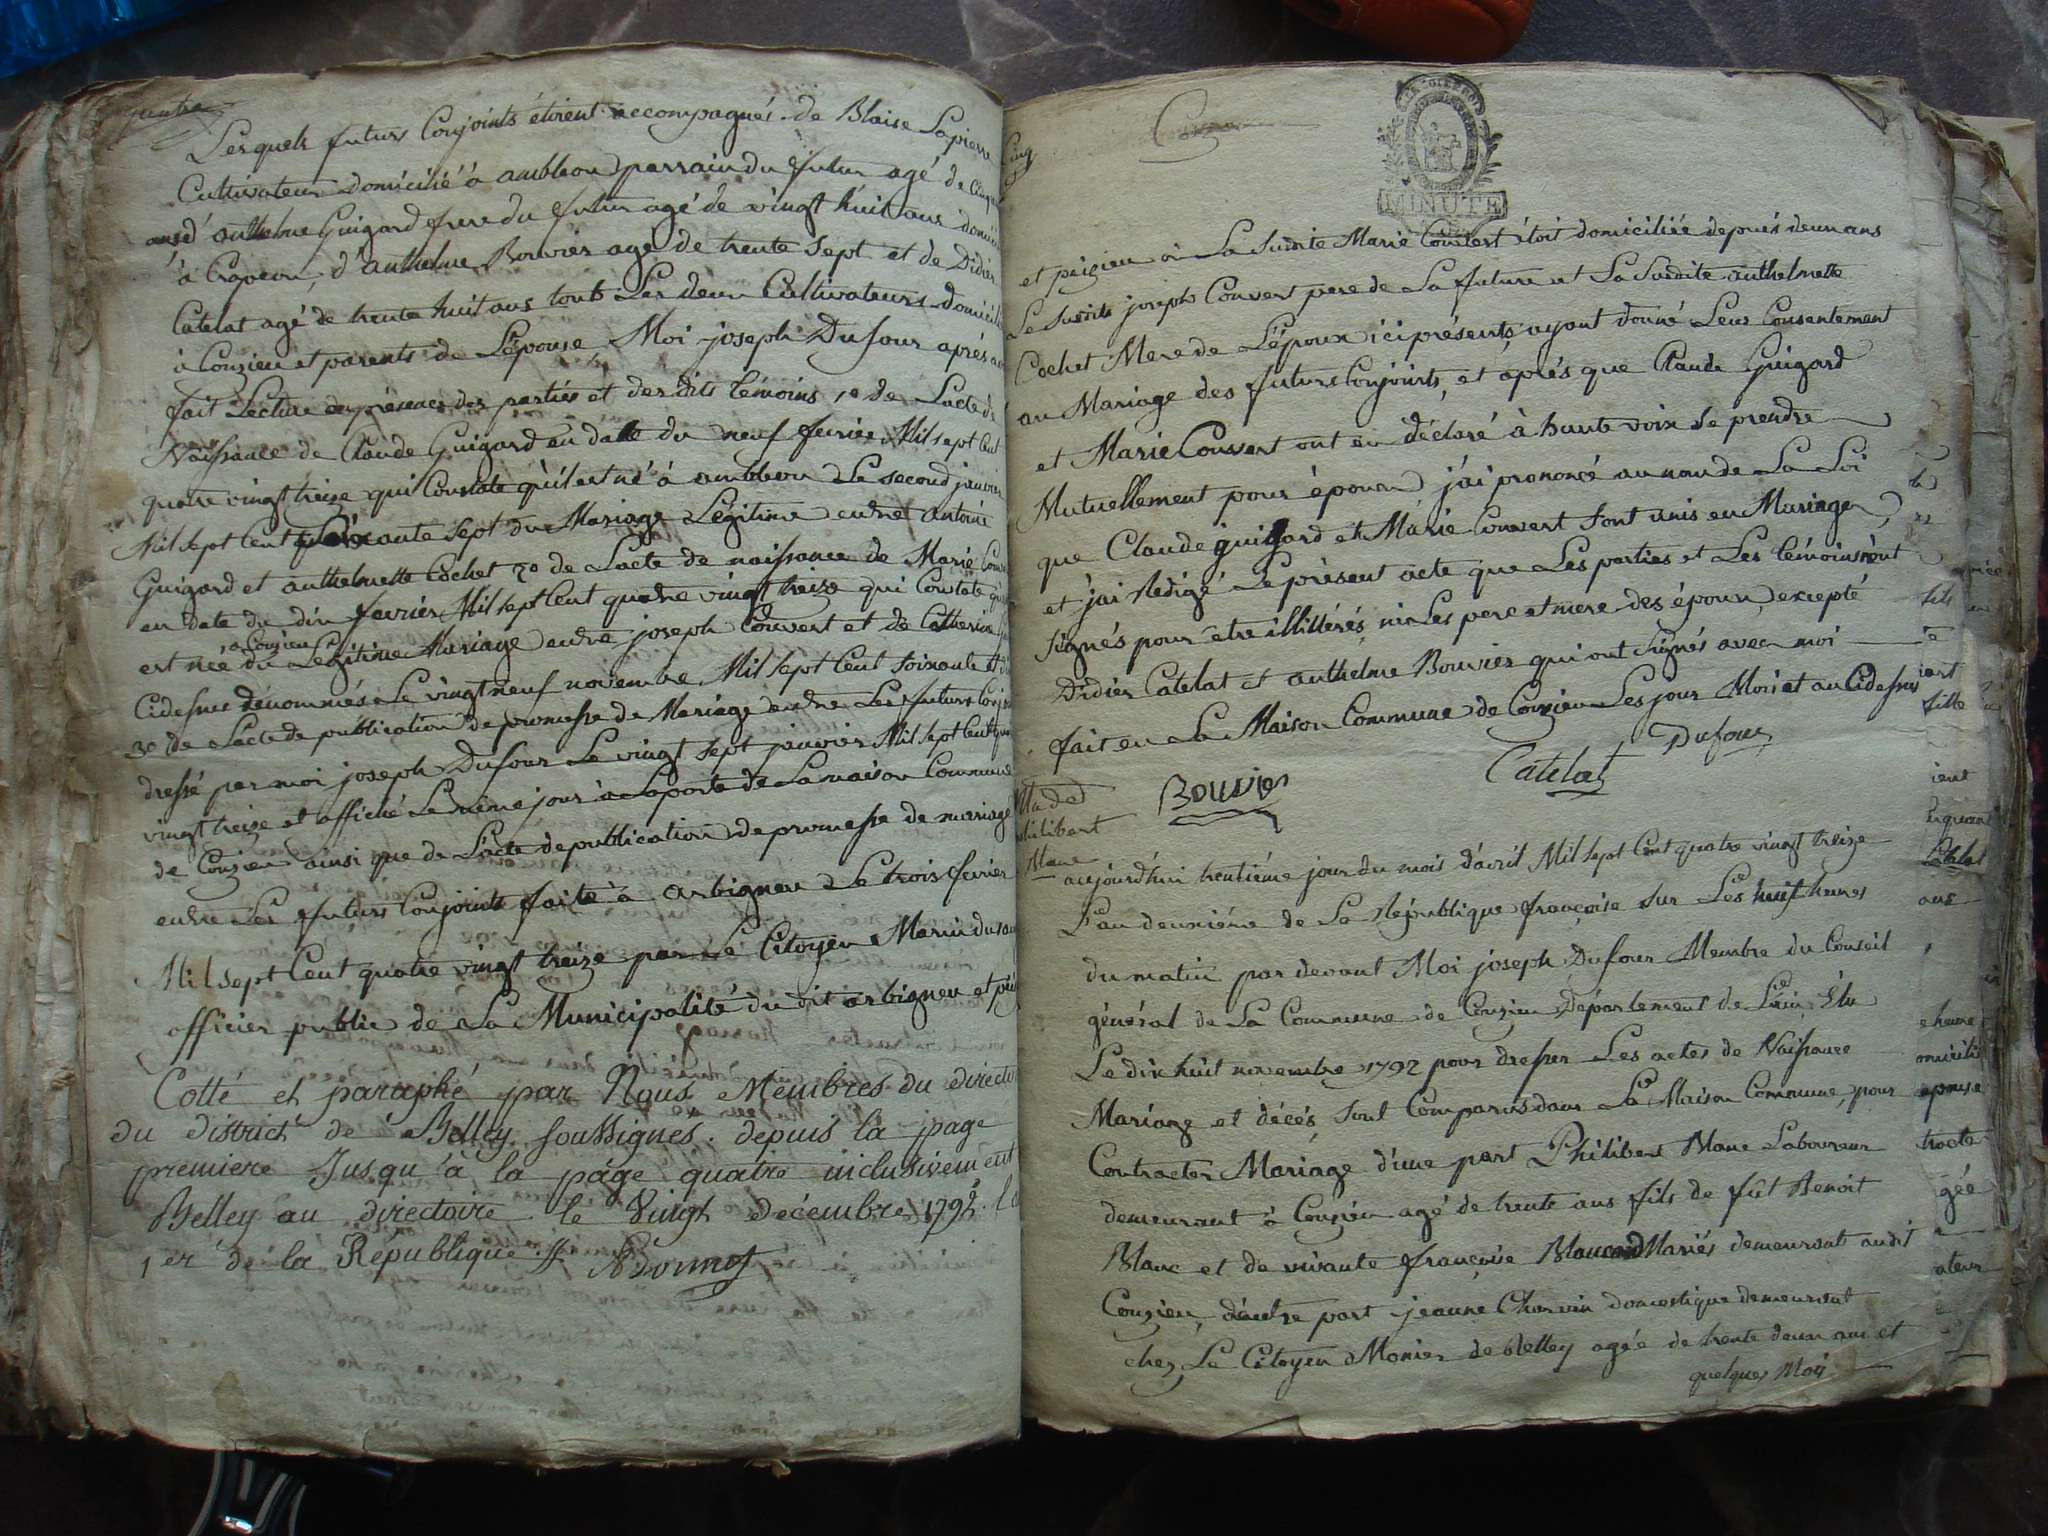 quatre
Lesquels futurs Conjoints étoient accompagnés de Blaise Lapierre
Cultivateur domicilié à ambleon parrain du futur agé de
ans d'anthelme Guigard frere du futur agé de vingt huit ans
à Crapeou, d'anthelme Bouvier agé de trente sept et de Didier
Catelat agé de trente huit ans touts Les deux Cultivateurs
à Conzieu et parents de L'épouse Moi joseph Dufour aprés
fait Lecture en présence des parties et des dits témoins, 1º de L'acte de
Naissance de Claude Guigard en datte du neuf fevrier Mil sept Cent
quatre vingt treize qui Constate qu'il est né à ambleon Le second janvier
Mil sept Cent soixante sept du Mariage Légitime entre antoine
Guigard et anthelmette Cochet 2º de L'acte de naissance de Marie
en date du dix fevrier Mil sept Cent quatre vingt treize qui Constate
à Conzieu
est née du Légitime Mariage entre joseph Couvert et de Catherine
Cidessus dénommés Le vingt neuf novembre Mil sept Cent soixante et
3º de L'acte de publication de promesse de Mariage entre Les futurs
dressé par moi joseph Dufour Le vingt sept janvier Mil sept Cent
vingt treize et affiché Le même jour à La porte de La maison Commune
de Conzieu ainsi que de L'acte de publication de promesse de mariage
entre Les futurs Conjoints faite à arbignieu Le trois fevrier
Mil sept Cent quatre vingt treize par Le Citoyen Marin
officier public de La Municipalité du dit arbignieu et
Cotté et paraphé par Nous Membres du
du district de Belley soussignés. depuis la page
premiere Jusqu'à la page quatre inclusivement
Belley au directoire le Vingt décembre 1792. l'a
1er de la Republique.
Cinq
MINUTE
et où La susdite Marie Couvert étoit domiciliée depuis deux ans
Le susdit joseph Couvert pere de La future et La Susdite anthelmette
Cochet Mere de L'époux ici présents ayant donné Leur Consentement
au Mariage des futurs Conjoints, et aprés que Claude Guigard
et Marie Couvert ont eu déclaré à haute voix se prendre
Mutuellement pour époux j'ai prononcé au nom de La Loi
que Claude guigard et Marie Couvert sont unis en Mariage
et j'ai Rédigé Le présent acte que Les parties et Les témoins n'ont
signés pour être illitérés, ni Les pere et mere des époux, excepté
Didier Catelat et anthelme Bouvier qui ont signés avec moi
fait en La Maison Commune de Conzieu Les jour Mois et an Cidessus
Dufour
Catelat
Bouvier
philibert
Blanc
aujourd'hui trentiéme jour du mois d'avril Mil sept Cent quatre vingt treize
L'an deuxiéme de La République françoise sur Les huit heures
du matin par devant Moi joseph Dufour Membre du Conseil
général de La Commune de Conzieu Département de L'ain, Élu
Le dix huit novembre 1792 pour dresser Les actes de Naissance
Mariage et décés sont Comparus dans La Maison Commune, pour
Contracter Mariage d'une part Philibert Blanc Laboureur
demeurant à Conzieu agé de trente ans fils de fût Benoit
Blanc et de vivante françoise Mariés demeurant audit
Conzieu, d'autre part jeanne Charvin domestique demeurant
chez Le Citoyen Monier de Belley agée de trente deux ans et
quelques Mois